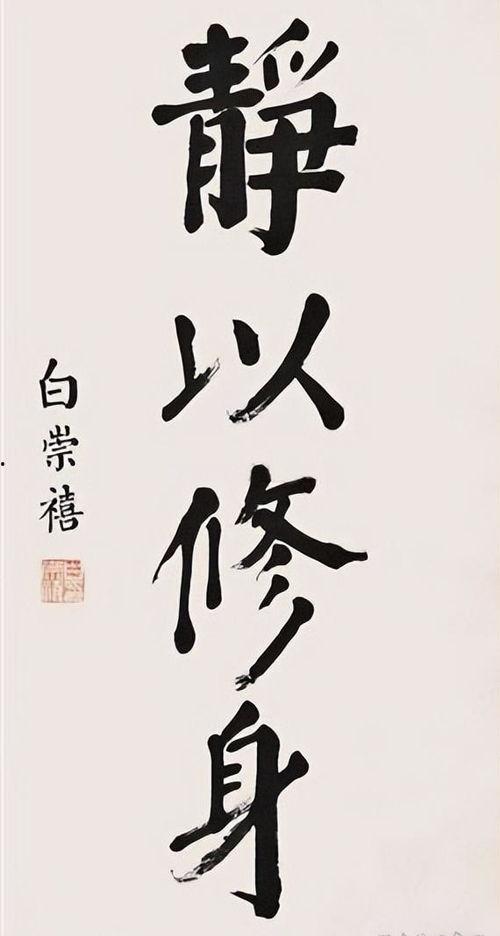 靜以修身
白崇禧